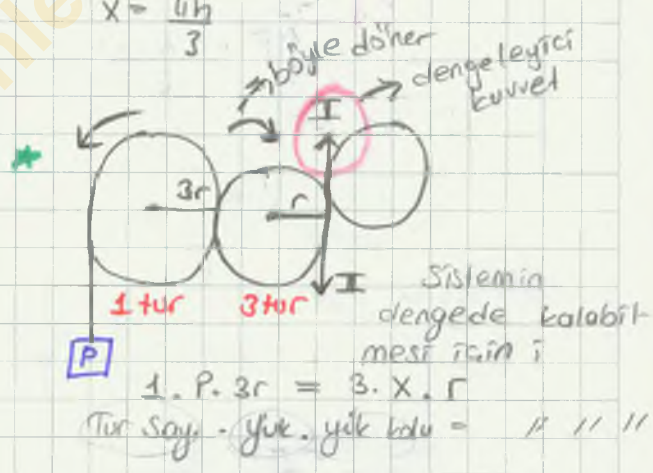 x = 4h
3
böyle döner
dengeleyici
kuvvet
I
3r
r
I
1 tur
3 tur
P
Sistemin
dengede kalabil-
mesi için ;
1. P. 3r = 3. X. r
Tur Say. . yük. yük kolu = " " "